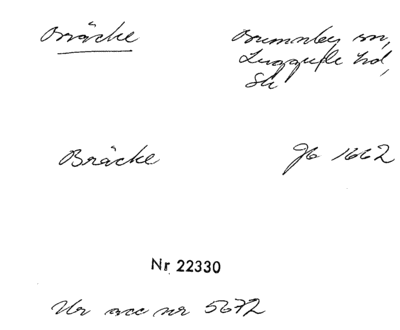 Bräcke Brunnby sn,
Luggude hd,
Sk
Bräcke Jb 1662
Nr 22330
Ur acc nr 5672